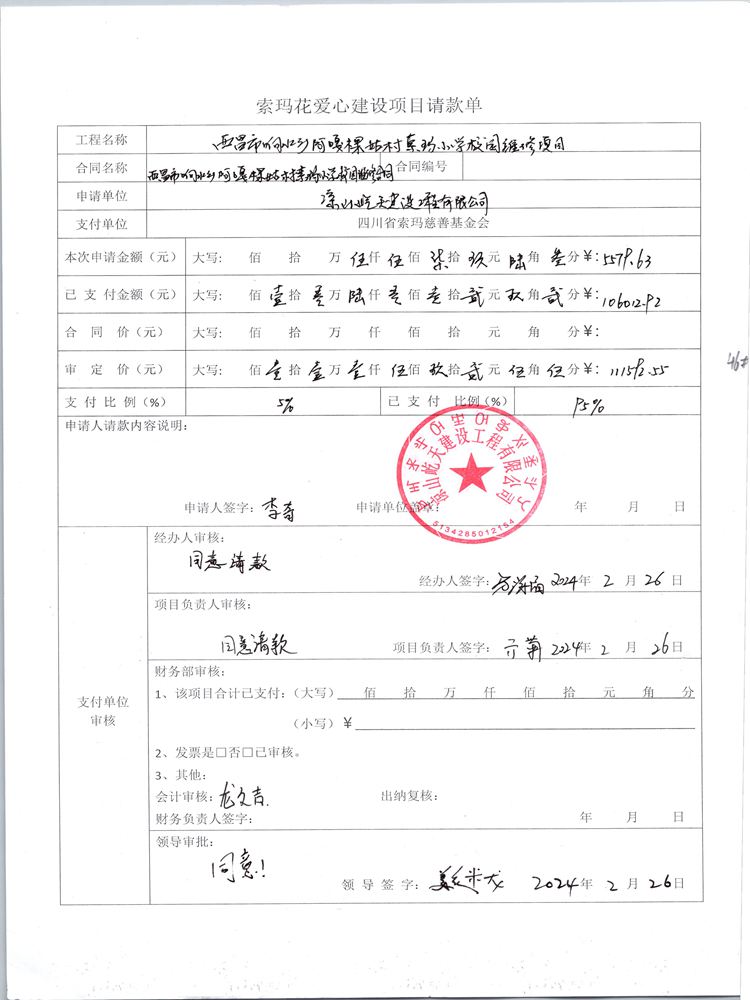 索玛花爱心建设项目请款单
工程名称 西昌市响水乡阿嘎棵姑村索玛小学校园维修项目
合同名称 西昌市响水乡阿嘎棵姑村索玛小学校园维修合同 合同编号
申请单位 凉山屹天建设工程有限公司
支付单位 四川省索玛慈善基金会
本次申请金额（元） 大写: 佰 拾 万 伍仟 伍佰 柒拾 玖元 陆角 叁分￥: 5579.63
已 支 付金额（元） 大写: 佰 壹拾 零万 陆仟 零佰 壹拾 贰元 玖角 贰分￥: 106012.92
合 同 价（元） 大写: 佰 拾 万 仟 佰 拾 元 角 分￥:
审 定 价（元） 大写: 佰 壹拾 壹万 壹仟 伍佰 玖拾 贰元 伍角 伍分￥: 111592.55
支 付 比 例（%） 5% 已 支 付 比例（%） 95%
申请人请款内容说明:
凉山屹天建设工程有限公司
5134285012154
申请人签字: 李奇 申请单位盖章: 年 月 日
支付单位
审核
经办人审核:
同意请款
经办人签字: 2024年 2 月 26 日
项目负责人审核:
同意请款
项目负责人签字: 2024年 2 月 26日
财务部审核:
1、该项目合计已支付:（大写） 佰 拾 万 仟 佰 拾 元 角 分
（小写）￥
2、发票是□否□已审核。
3、其他:
会计审核: 龙久吉. 出纳复核:
财务负责人签字: 年 月 日
领导审批:
同意!
领 导 签 字: 2024年 2 月 26日
46#